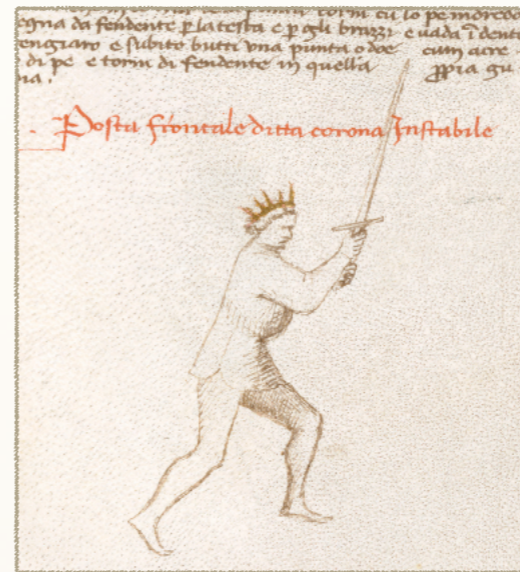 egna da fendente p la testa e p gli brazzi e vada i dent
engiaro e subito butti una punta o doe cum acre
di pe e torni di fendente in quella ppia gu
na.
Posta frontale ditta corona Instabile